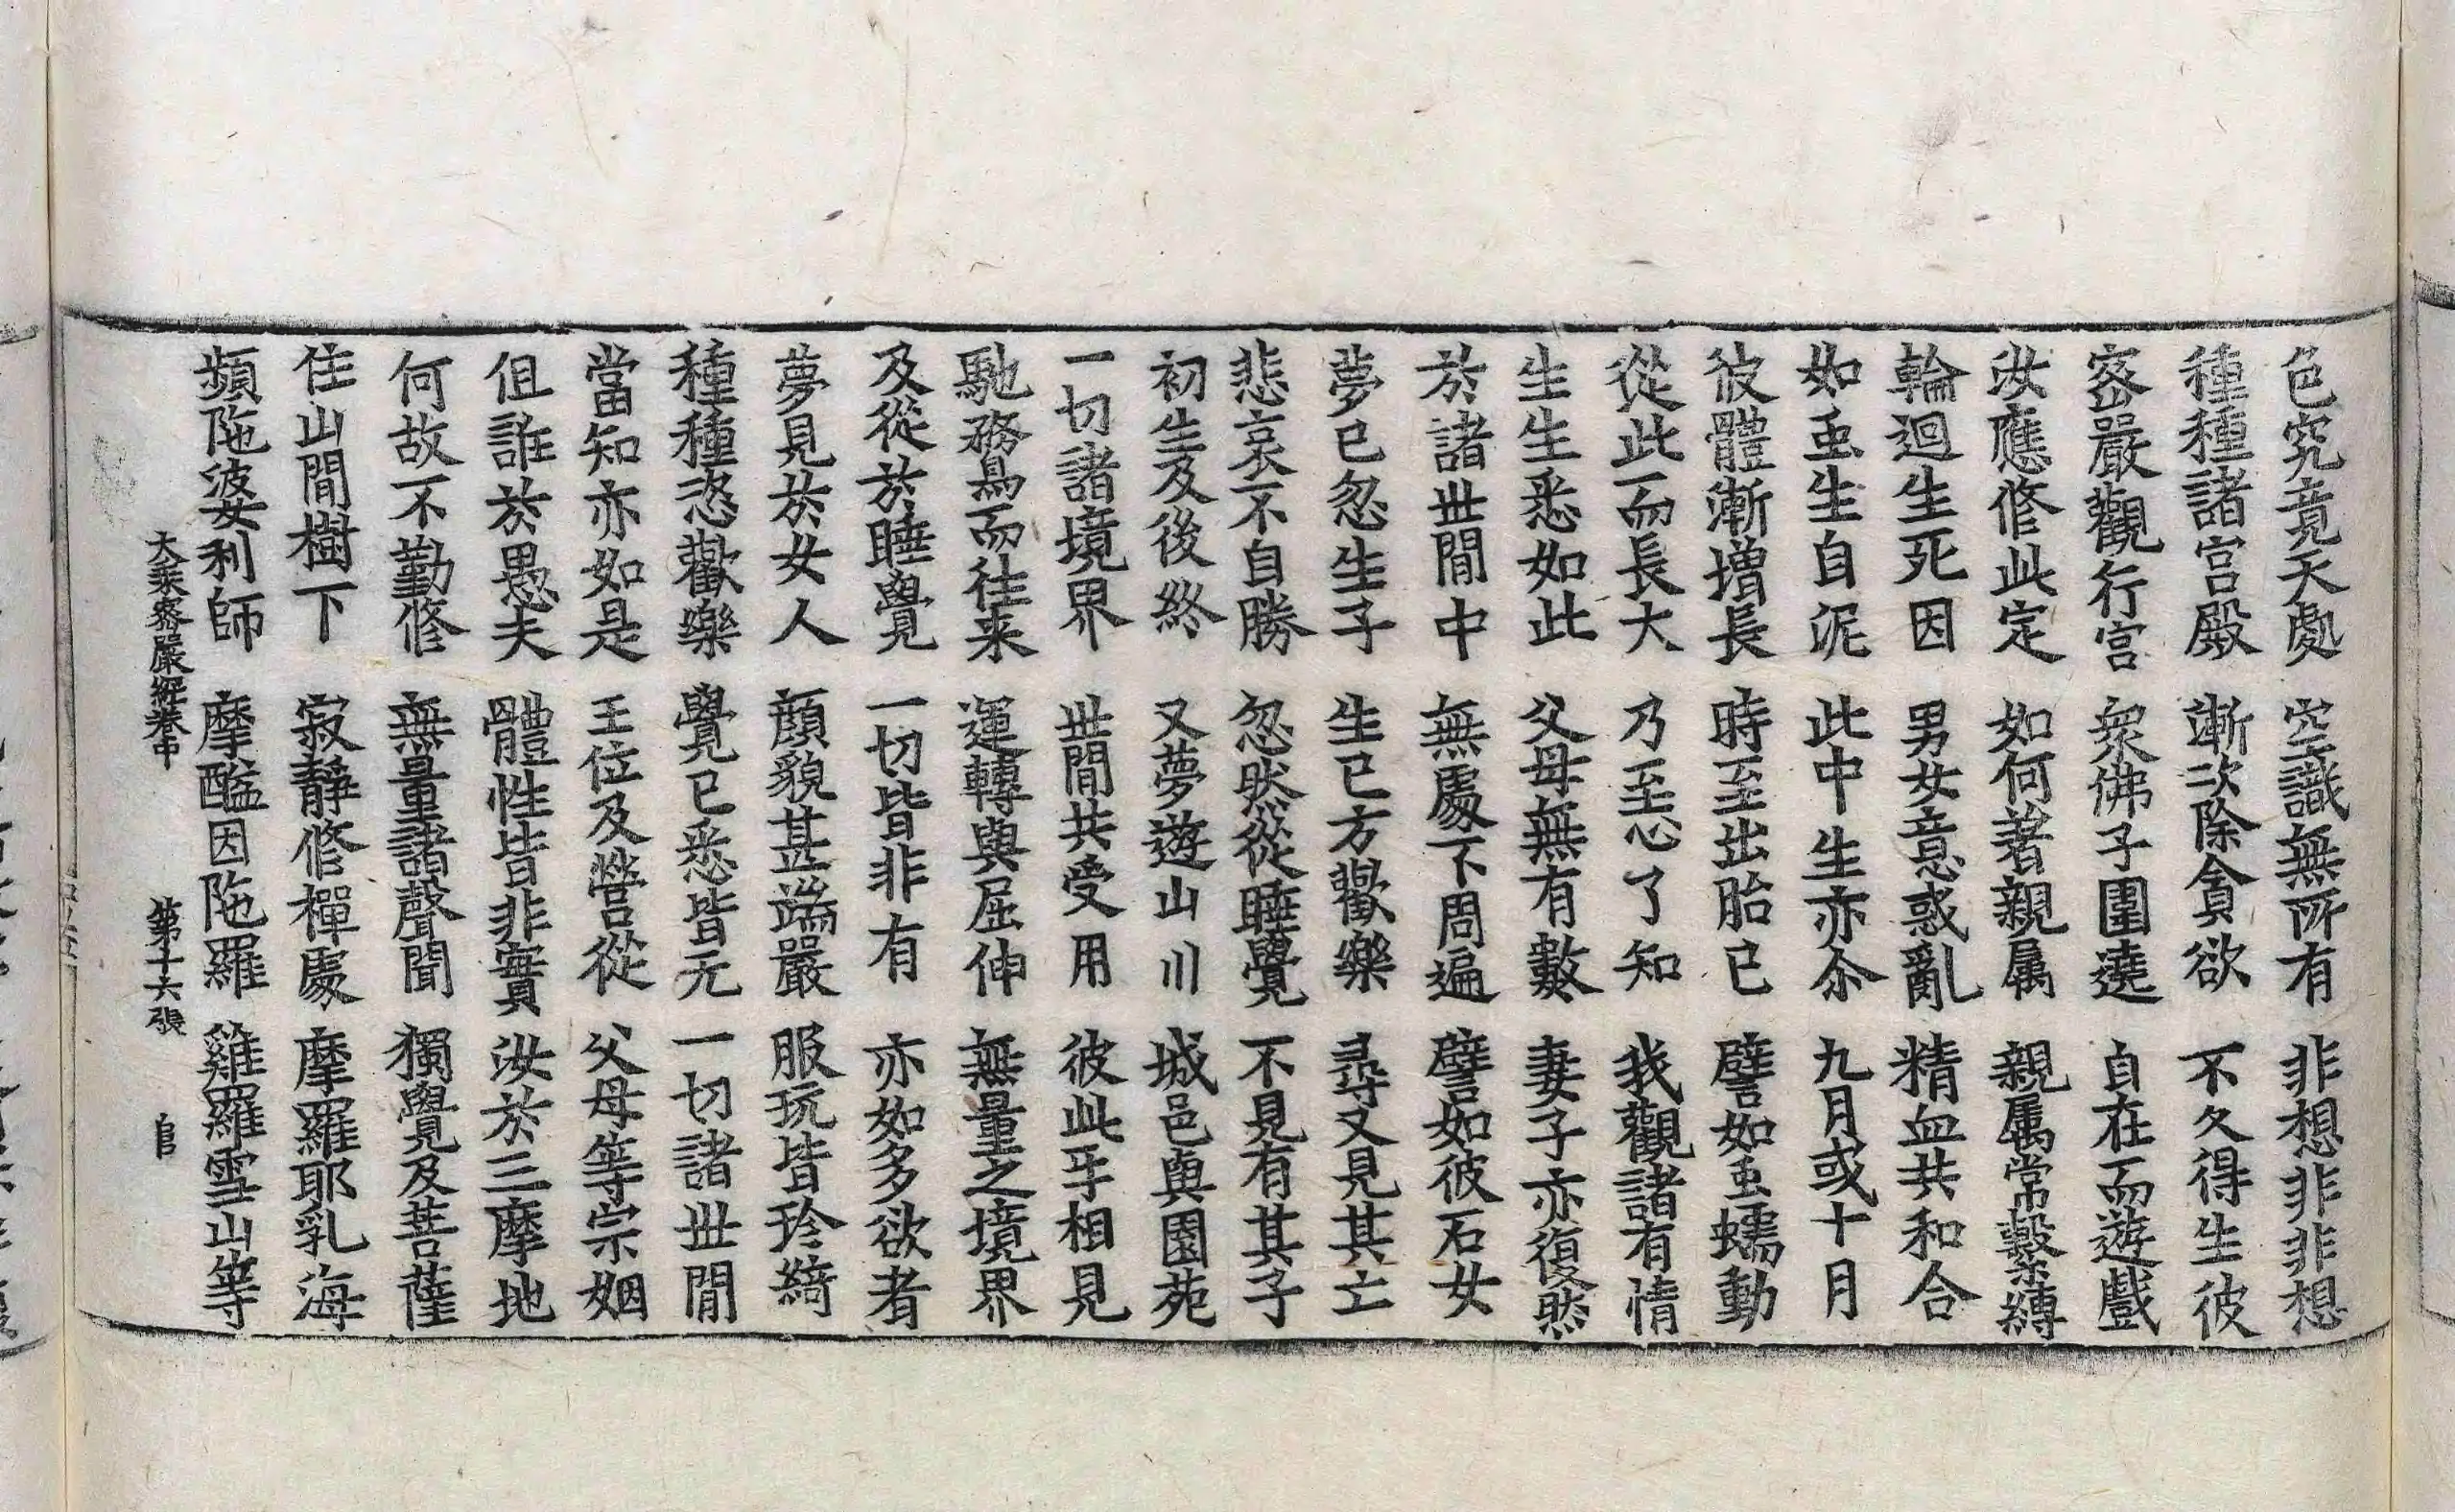 色究竟天處 空識無所有 非想非非想
種種諸宮殿 漸次除貪欲 不久得生彼
密嚴觀行宮 衆佛子圍遶 自在而遊戲
汝應修此定 如何著親属 親属常繫縛
輪迴生死因 男女意惑亂 精血共和合
如䖝生自泥 此中生亦尒 九月或十月
彼體漸增長 時至出胎已 譬如䖝蠕動
從此而長大 乃至心了知 我觀諸有情
生生悉如此 父母無有數 妻子亦復然
於諸世間中 無處不周遍 譬如彼石女
夢已忽生子 生已方歡樂 尋又見其亡
悲哀不自勝 忽然從睡覺 不見有其子
初生及後終 又夢遊山川 城邑與園苑
一切諸境界 世間共受用 彼此㸦相見
馳騖而往来 運轉與屈伸 無量之境界
及從於睡覺 一切皆非有 亦如多欲者
夢見於女人 顔貌甚端嚴 服玩皆珍綺
種種恣歡樂 覺已悉皆无 一切諸世間
當知亦如是 王位及營從 父母等宗姻
但誑於愚夫 體性皆非實 汝於三摩地
何故不勤修 無量諸聲聞 獨覺及菩薩
住山間樹下 寂靜修禪處 摩羅耶乳海
頻陁婆利師 摩醯因陁羅 雞羅雪山等
大乘密嚴經卷中 第十六張